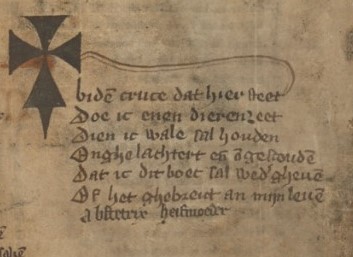 bidē cruce dat hier steet
Doe ic enen dieren eet
Dien ic wale sal houden
Onghelachtert eñ ōgescouden
Dat ic dit boec sal wed'gheuē
Of het ghebreict an mijn leuē
Abstetrix heifmoeder